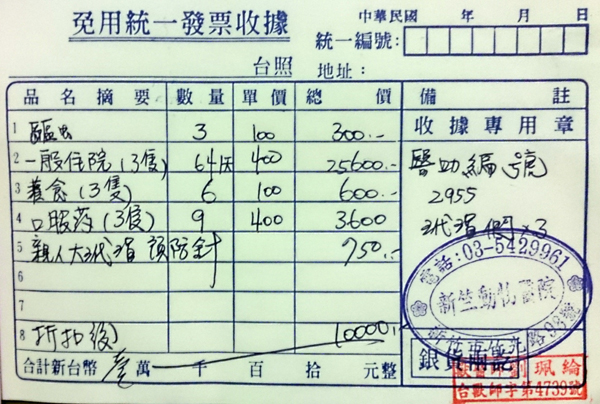 免用統一發票收據
中華民國 年 月 日
統一編號:
台照 地址:
品名摘要 數量 單價 總價 備註
1 驅虫 3 100 300.-
收據專用章
2 一般住院(3隻) 64天 400 25600.-
醫助編號
3 養食(3隻) 6 100 600.-
2955
4 口服药(3隻) 9 400 3600
×3
5 親人大 預防針 750.-
電話:03-5429961
6
新竺動物醫院
7
新竹市竹光路98號
8 折扣後 10000.-
合計新台幣 壹萬 千 百 拾 元整
銀貨兩訖
獸醫師劉珮綸
台獸師字第4739號